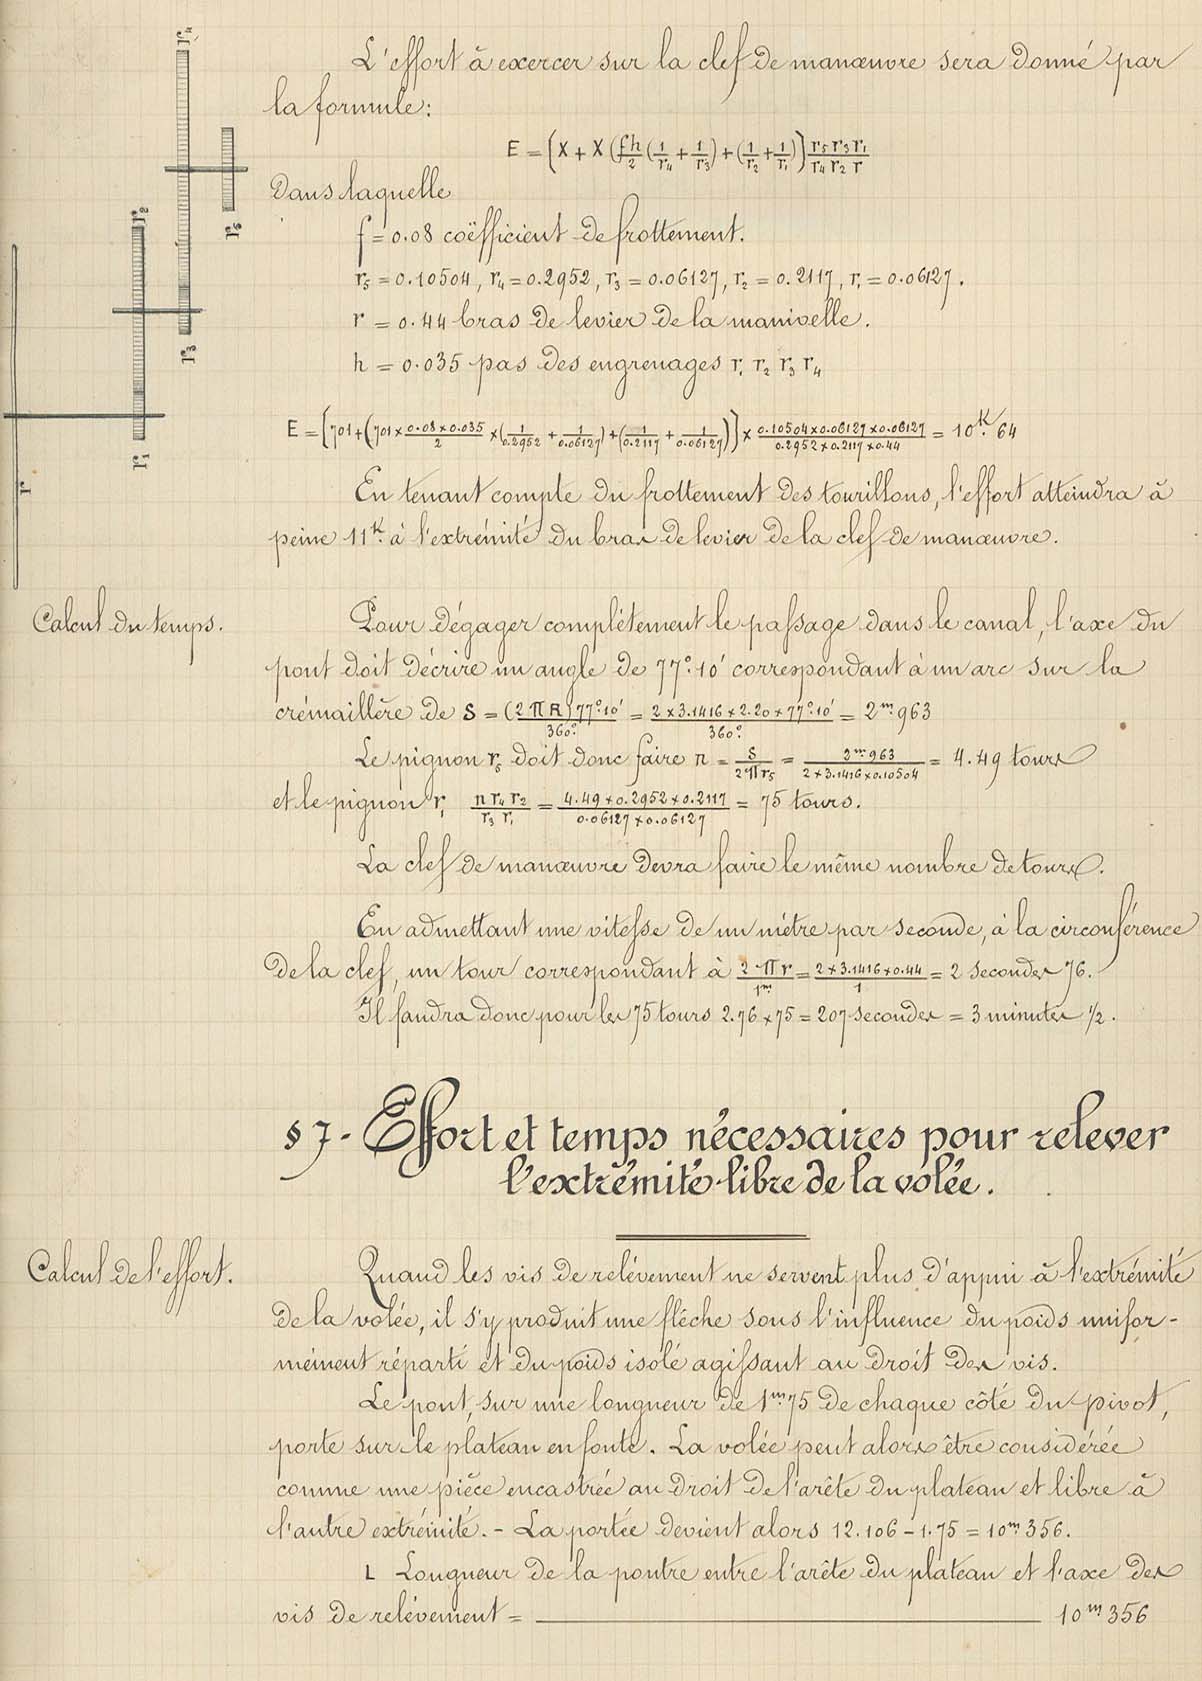 L'effort à exercer sur la clef de manœuvre sera donné par
la formule:
E = [X + X (fh/2 (1/r4 + 1/r3) + (1/r2 + 1/r1)] r5 r3 r1 / r4 r2 r
dans laquelle
f = 0.08 coëfficient de frottement.
r5 = 0.10504, r4 = 0.2952, r3 = 0.06127, r2 = 0.2117, r1 = 0.06127.
r = 0.44 bras de levier de la manivelle.
h = 0.035 pas des engrenages r1 r2 r3 r4
E = [701 + (701 × 0.08 × 0.035 / 2 × (1/0.2952 + 1/0.06127) + (1/0.2117 + 1/0.06127))] × 0.10504 × 0.06127 × 0.06127 / 0.2952 × 0.2117 × 0.44 = 10K.64
En tenant compte du frottement des tourillons, l'effort atteindra à
peine 11K. à l'extrémité du bras de levier de la clef de manœuvre.
Calcul du temps.
Pour dégager complétement le passage dans le canal, l'axe du
pont doit décrire un angle de 77°.10' correspondant à un arc sur la
crémaillère de S = (2 π R) 77°.10' / 360° = 2 × 3.1416 × 2.20 × 77°.10' / 360° = 2m.963
Le pignon r5 doit donc faire n = S / 2 π r5 = 2m.963 / 2 × 3.1416 × 0.10504 = 4.49 tours
et le pignon r1 n r4 r2 / r3 r1 = 4.49 × 0.2952 × 0.2117 / 0.06127 × 0.06127 = 75 tours.
La clef de manœuvre devra faire le même nombre de tours.
En admettant une vitesse de un métre par seconde, à la circonférence
de la clef, un tour correspondant à 2 π r / 1m = 2 × 3.1416 × 0.44 / 1 = 2 secondes 76.
Il faudra donc pour les 75 tours 2.76 × 75 = 207 secondes = 3 minutes 1/2.
§ 7 - Effort et temps nécessaires pour relever
l'extrémité libre de la volée.
Calcul de l'effort.
Quand les vis de relévement ne servent plus d'appui à l'extrémité
de la volée, il s'y produit une fléche sous l'influence du poids unifor-
mément réparti et du poids isolé agissant au droit des vis.
Le pont, sur une longueur de 1m.75 de chaque côté du pivot,
porte sur le plateau en fonte. La volée peut alors être considérée
comme une pièce encastrée au droit de l'arête du plateau et libre à
l'autre extrémité. - La portée devient alors 12.106 - 1.75 = 10m.356.
L Longueur de la poutre entre l'arête du plateau et l'axe des
vis de relévement = 10m.356
r4
r6
r2
r3
r1
r